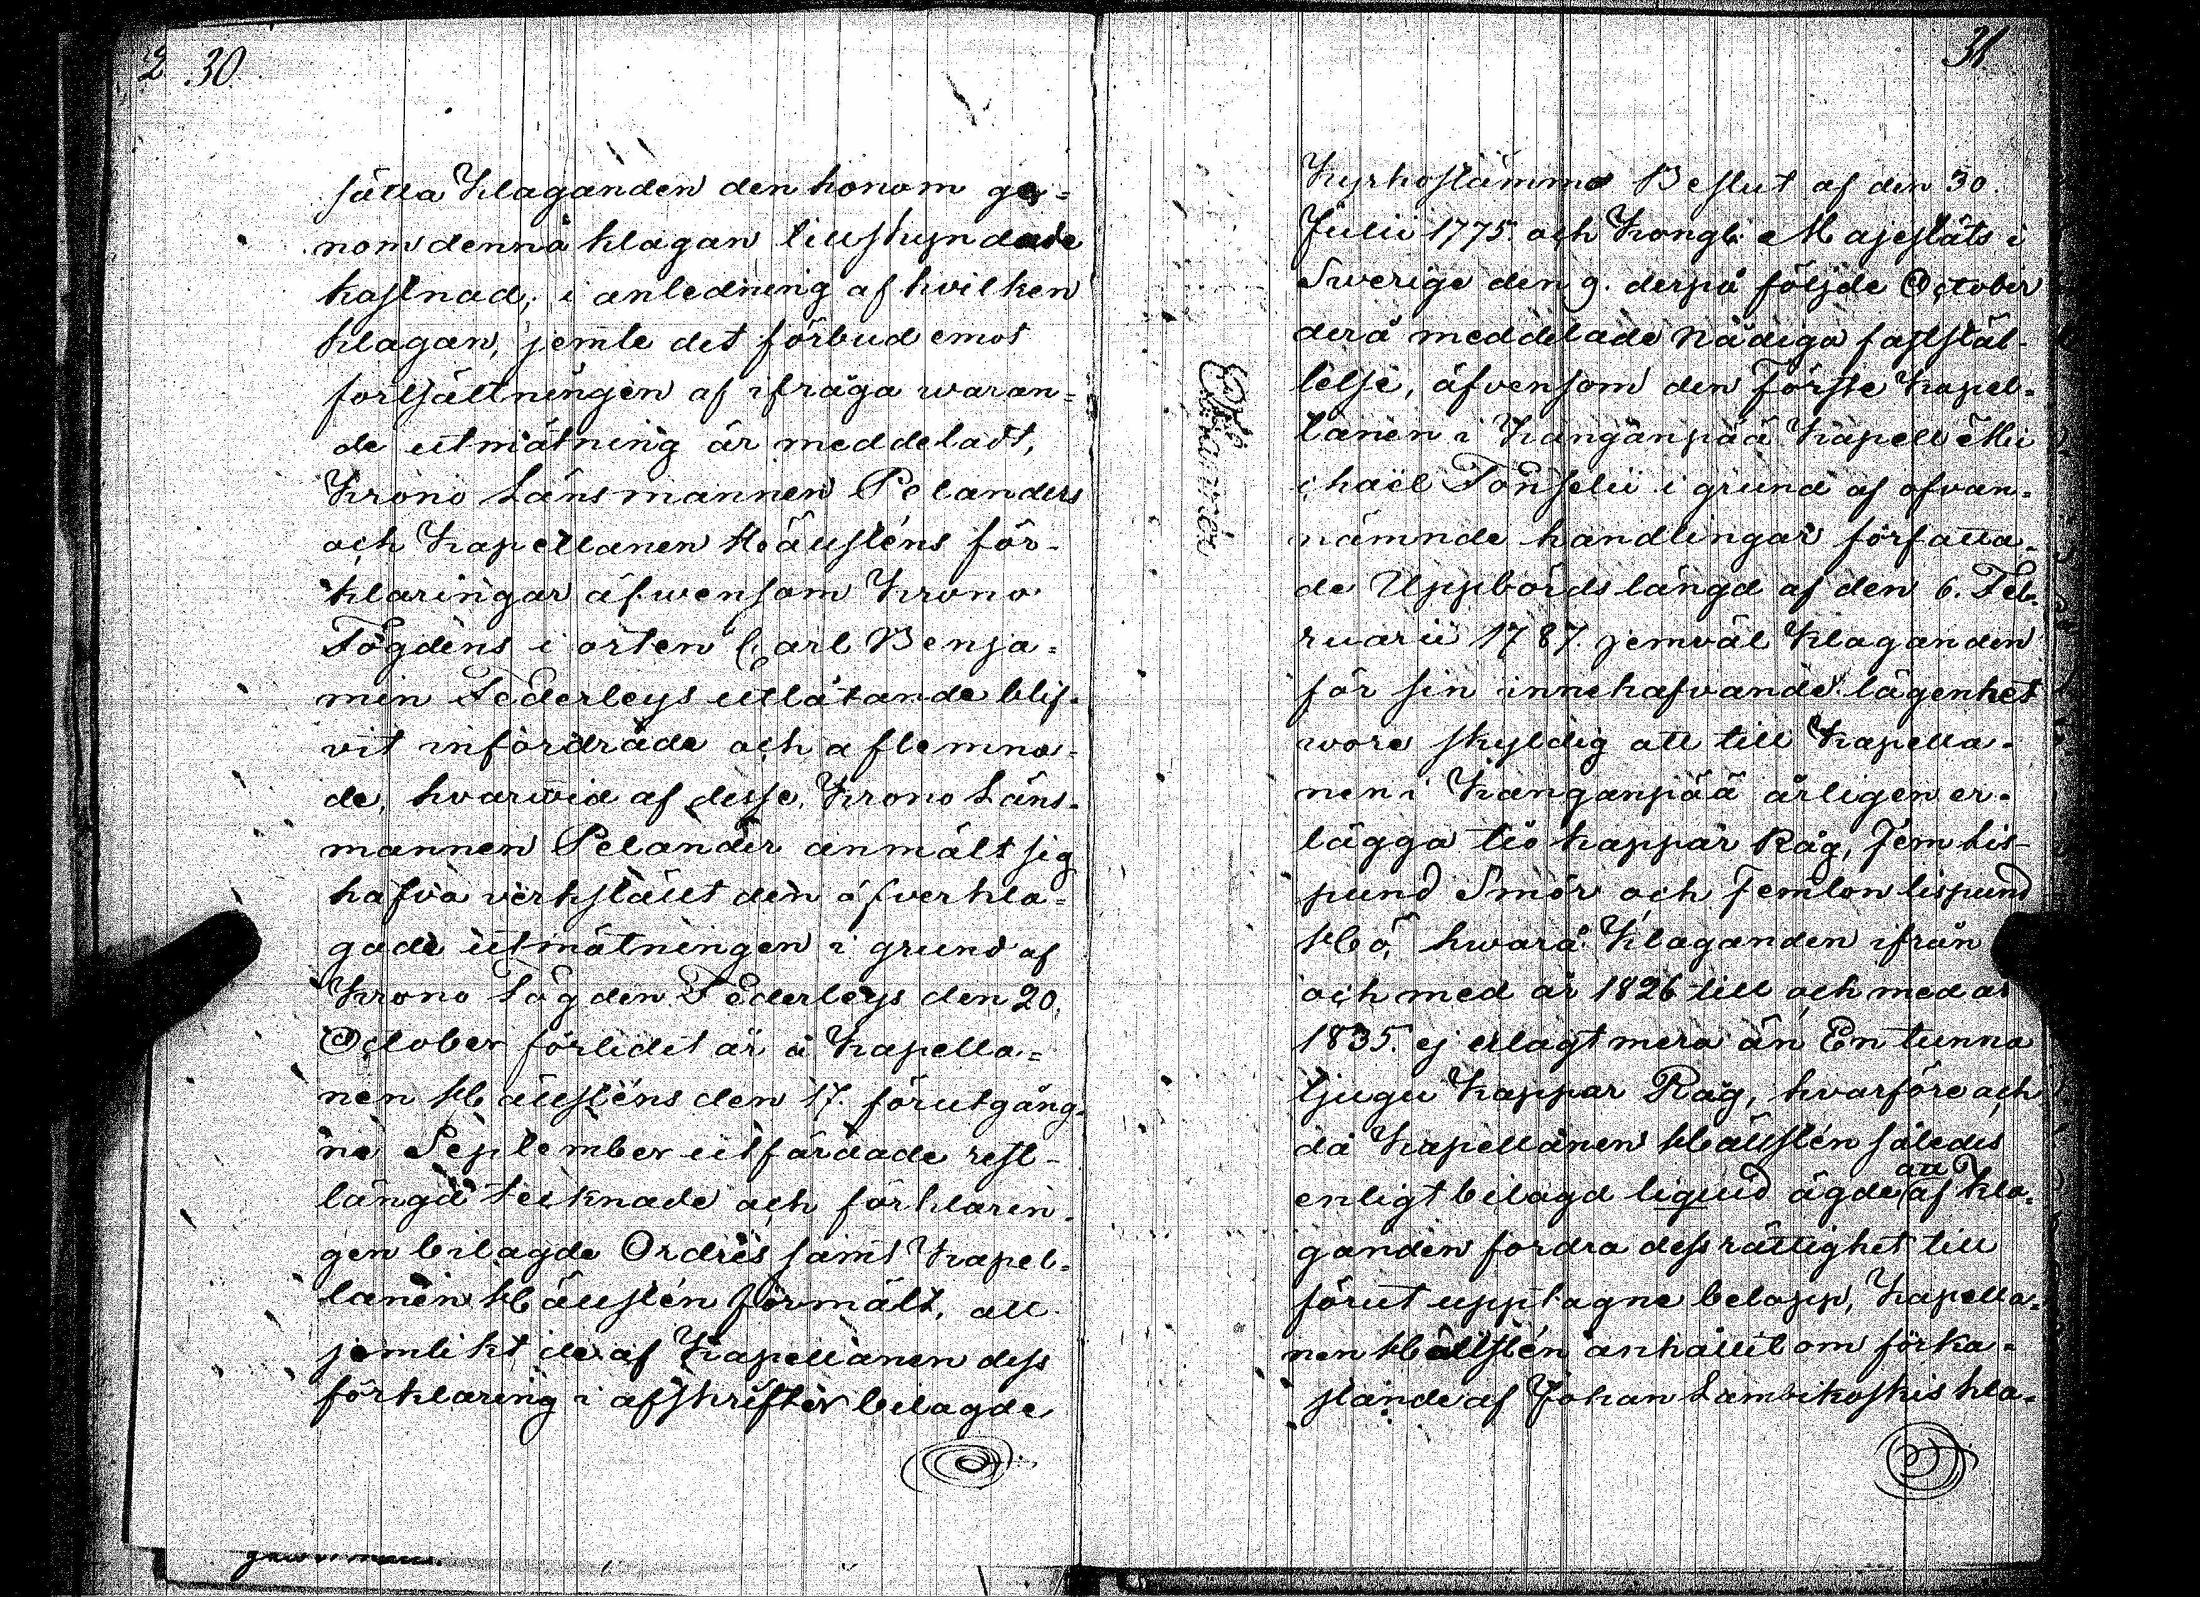 2 30.
sätta Klaganden den honom ge¬
nom denna klagan tillskyndade
kostnad; i anledning af hvilken
klagan, jemte det förbud emot
fortsättningen af ifråga waran¬
de utmätning är meddeladt,
Krono Länsmannen Pelanders
och Kapellanen Hällsténs för¬
klaringar äfwensom Krono
Fogdens i orten Carl Benja¬
min Federleys utlåtande blif¬
vit infordrade och aflemna¬
de, hvarwid af desse, Krono Läns¬
mannen Pelander anmält sig
hafva verkställt den öfverkla¬
gade utmätningen i grund af
Krono Fogden Federleys den 20.
October förlidet år å Kapella¬
nen Hällsténs den 17. förutgång¬
ne September utfärdade rest¬
längd tecknade och förklarin¬
gen bilagde Ordres samt Kapel¬
lanen Hällstén förmält, att
jemlikt de af Kapellanen dess
förklaring i afskrifter bilagde
31
Kyrkostämmo Beslut af den 30.
Julii 1775. och Kongl. Majestäts i
Swerige den 9. derpå följde October
derå meddelade Nådiga faststäl¬
lelse, äfvensom den Förste Kapel¬
lanen i Kangänpää Kapell Mi
chaël Tonselii i grund af ofvan¬
nämnde handlingar författa¬
de Uppbördslängd af den 6. Feb¬
ruarii 1787. jemväl Klaganden
för sin innehafvande lägenhet
wore skyldig att till Kapella¬
nen i Kanganpää årligen er¬
lägga tio kappar Råg, Fem Lis¬
pund Smör och Femton lispund
Hö, hwarå Klaganden ifrån
och med år 1826 till och med år
1835. ej erlagt mera än En tunna
tjugu Kappar Råg, hvarföre och
då Kapellanen Hällstén således
enligt bilagd liquid ägde att af Kla¬
ganden fordra dess rättighet till
förut upptagne belopp, Kapella¬
nen Hällstén anhållit om förka¬
stande af Johan Lambikoskis kla¬